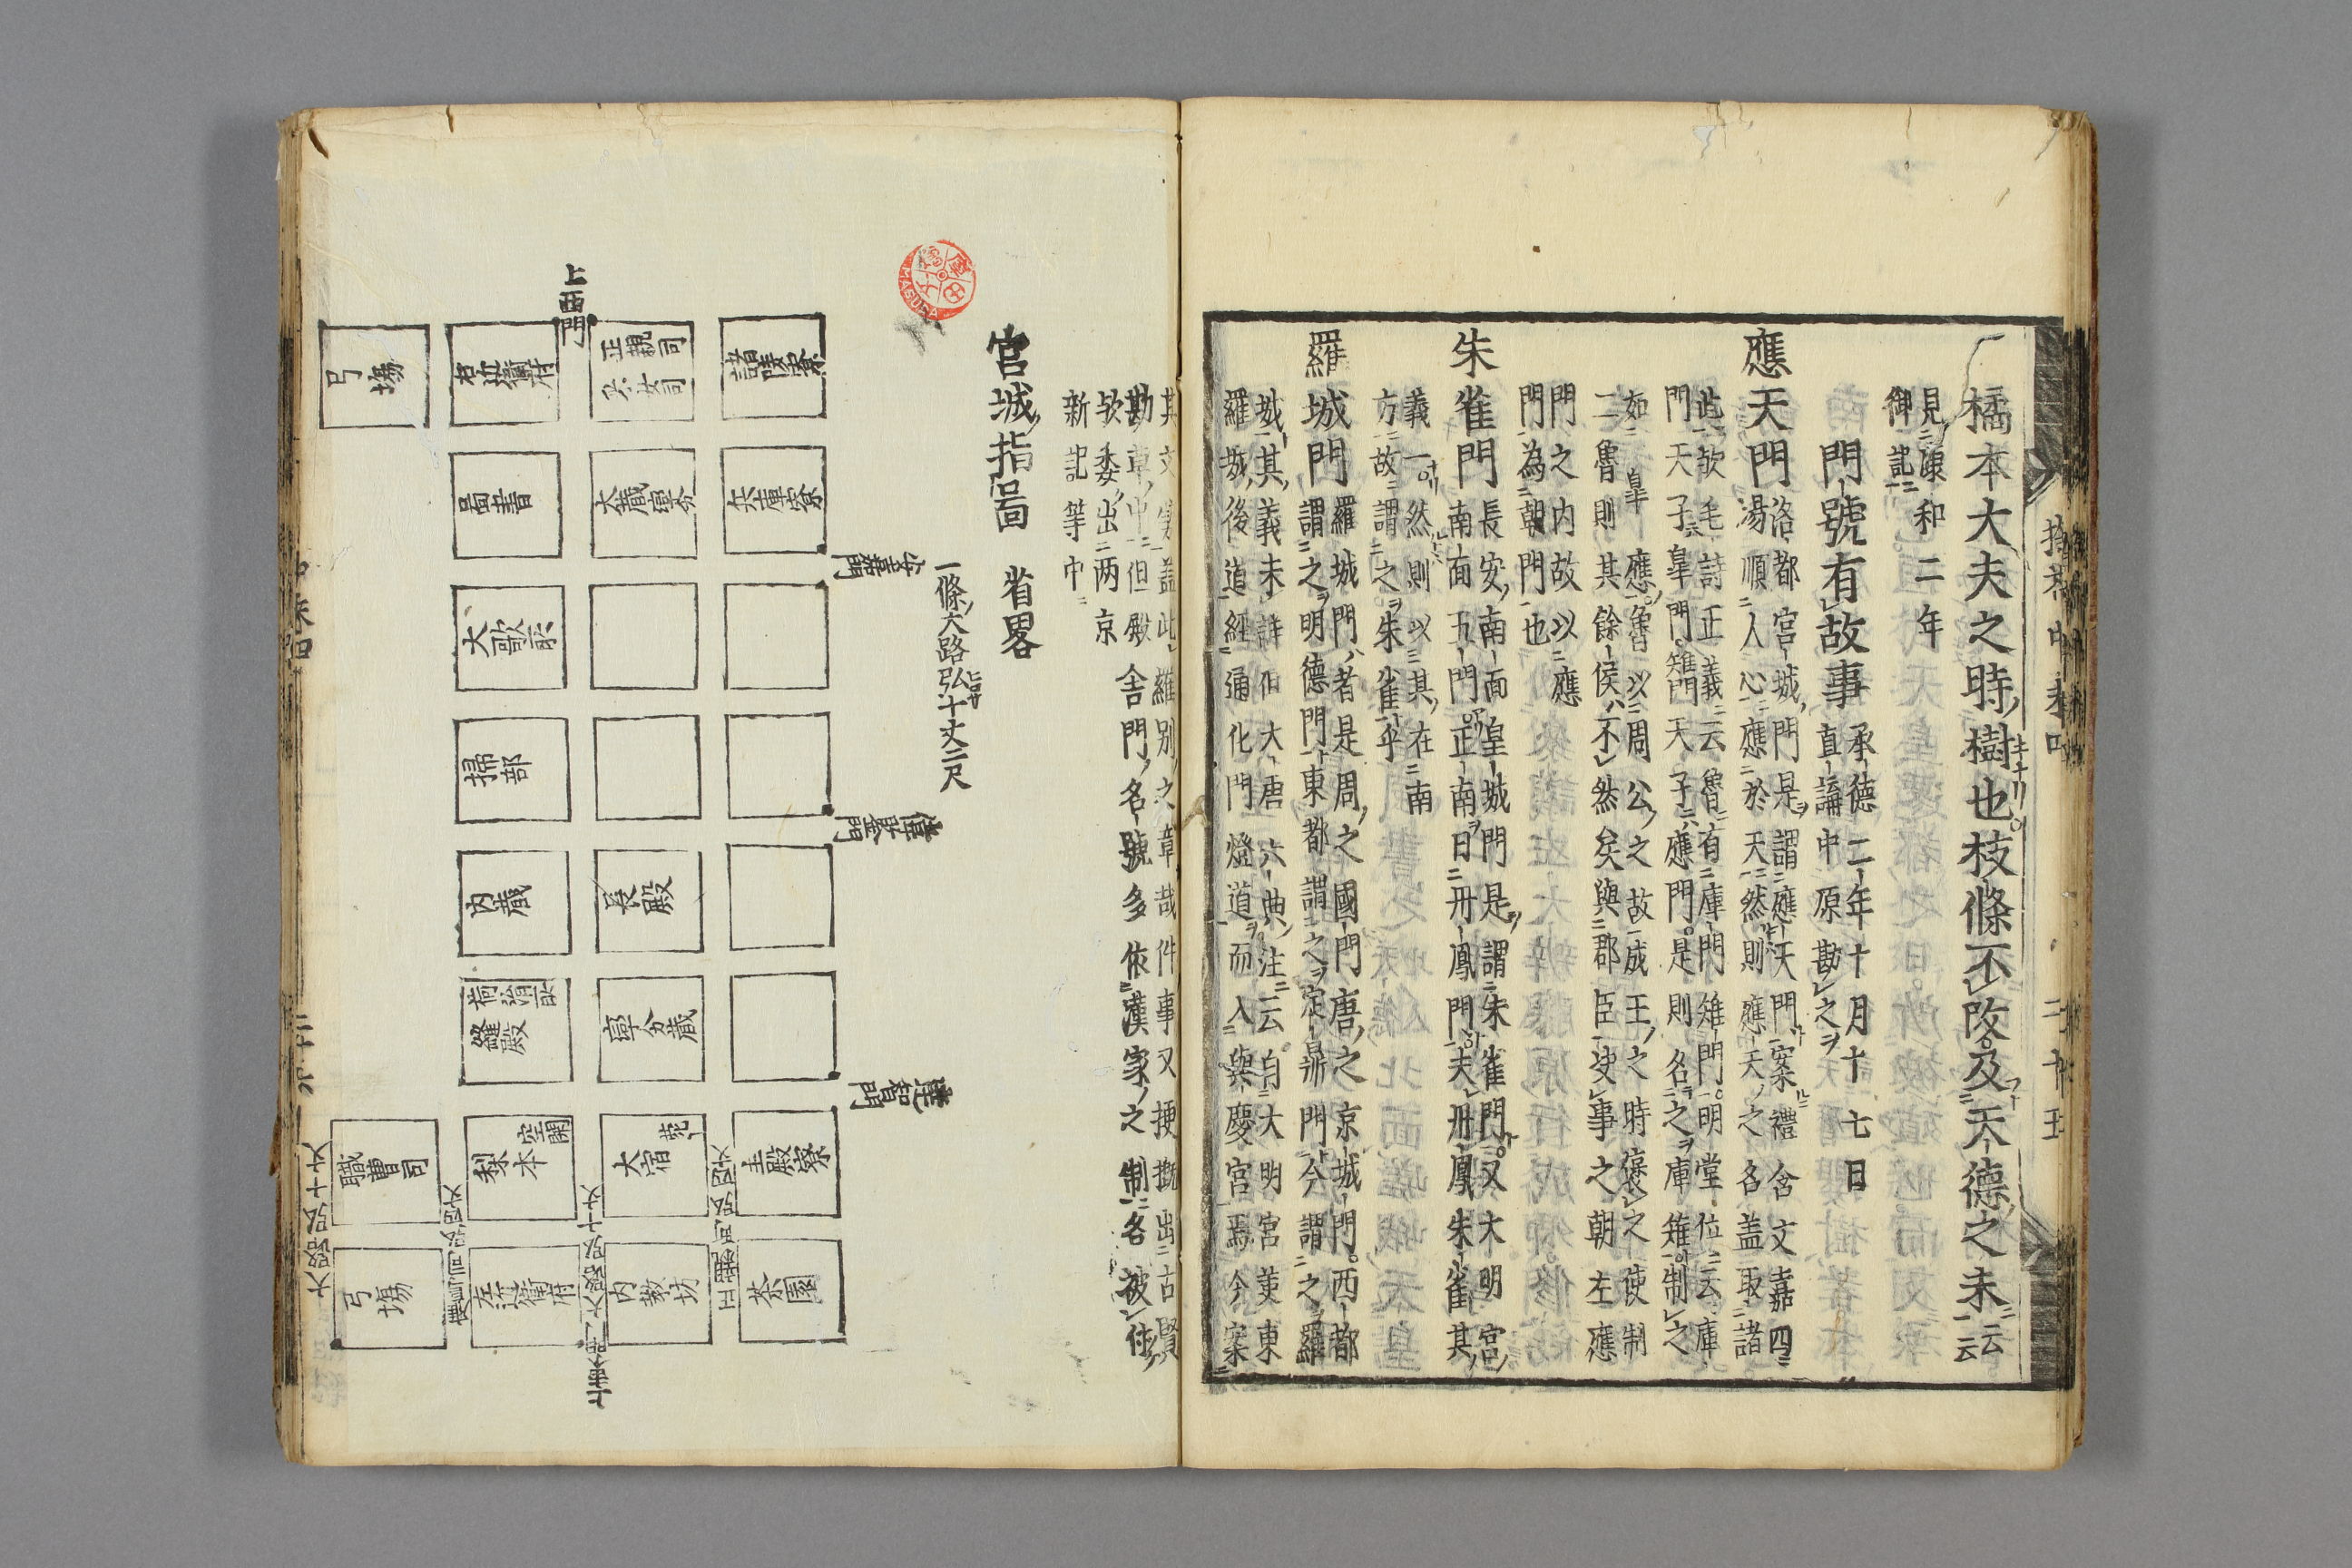 橘本大夫之時樹也枝條不改及天德之未云云
見康和二年
御記
門號有故事
承德二年十月十七日
直講中原勘之
應天門
洛都宮城門是謂應天門案禮含文嘉四
湯順人心應於天然則應天之名盖取諸
此欤毛詩正義云魯有庫門雉門明堂位云庫
門天子皐門雉門天子應門是則名之庫雉制之
如皐應魯以周公之故成王之時褒之使制
二魯則其餘侯不然矣與郡臣決事之朝左應
門之内故以應
門為朝門也
朱雀門
長安南面皇城門是謂朱雀門又大明宮
南面五門正南曰丹鳳門夫丹鳳朱雀其
義一然則以其在南
方故謂之朱雀乎
羅城門
羅城門者是周之國門唐之京城門西都
謂之明德門東都謂之定鼎門今謂之羅
城其義未詳但大唐六典注云自大明宮夾東
羅城後道經通化門燈道而入與慶宮焉今案
其文羅別之章哉件事又梗概出古賢
勘草中但殿舍門名號多依漢家之制各被件
欤委出両京
新記等中
宮城指啚 省畧
一條大路弘十丈二尺
達智門
諸陵寮
兵庫寮
主殿寮
茶園
上西門
正親司
采女司
大蔵
長殿
大宿
内教坊
上東門
大路弘十丈
右近衛府
啚書
大歌所
掃部
内蔵
縫殿
梨本
左近衛府
弓場
職曹司
弓場
大路弘十丈